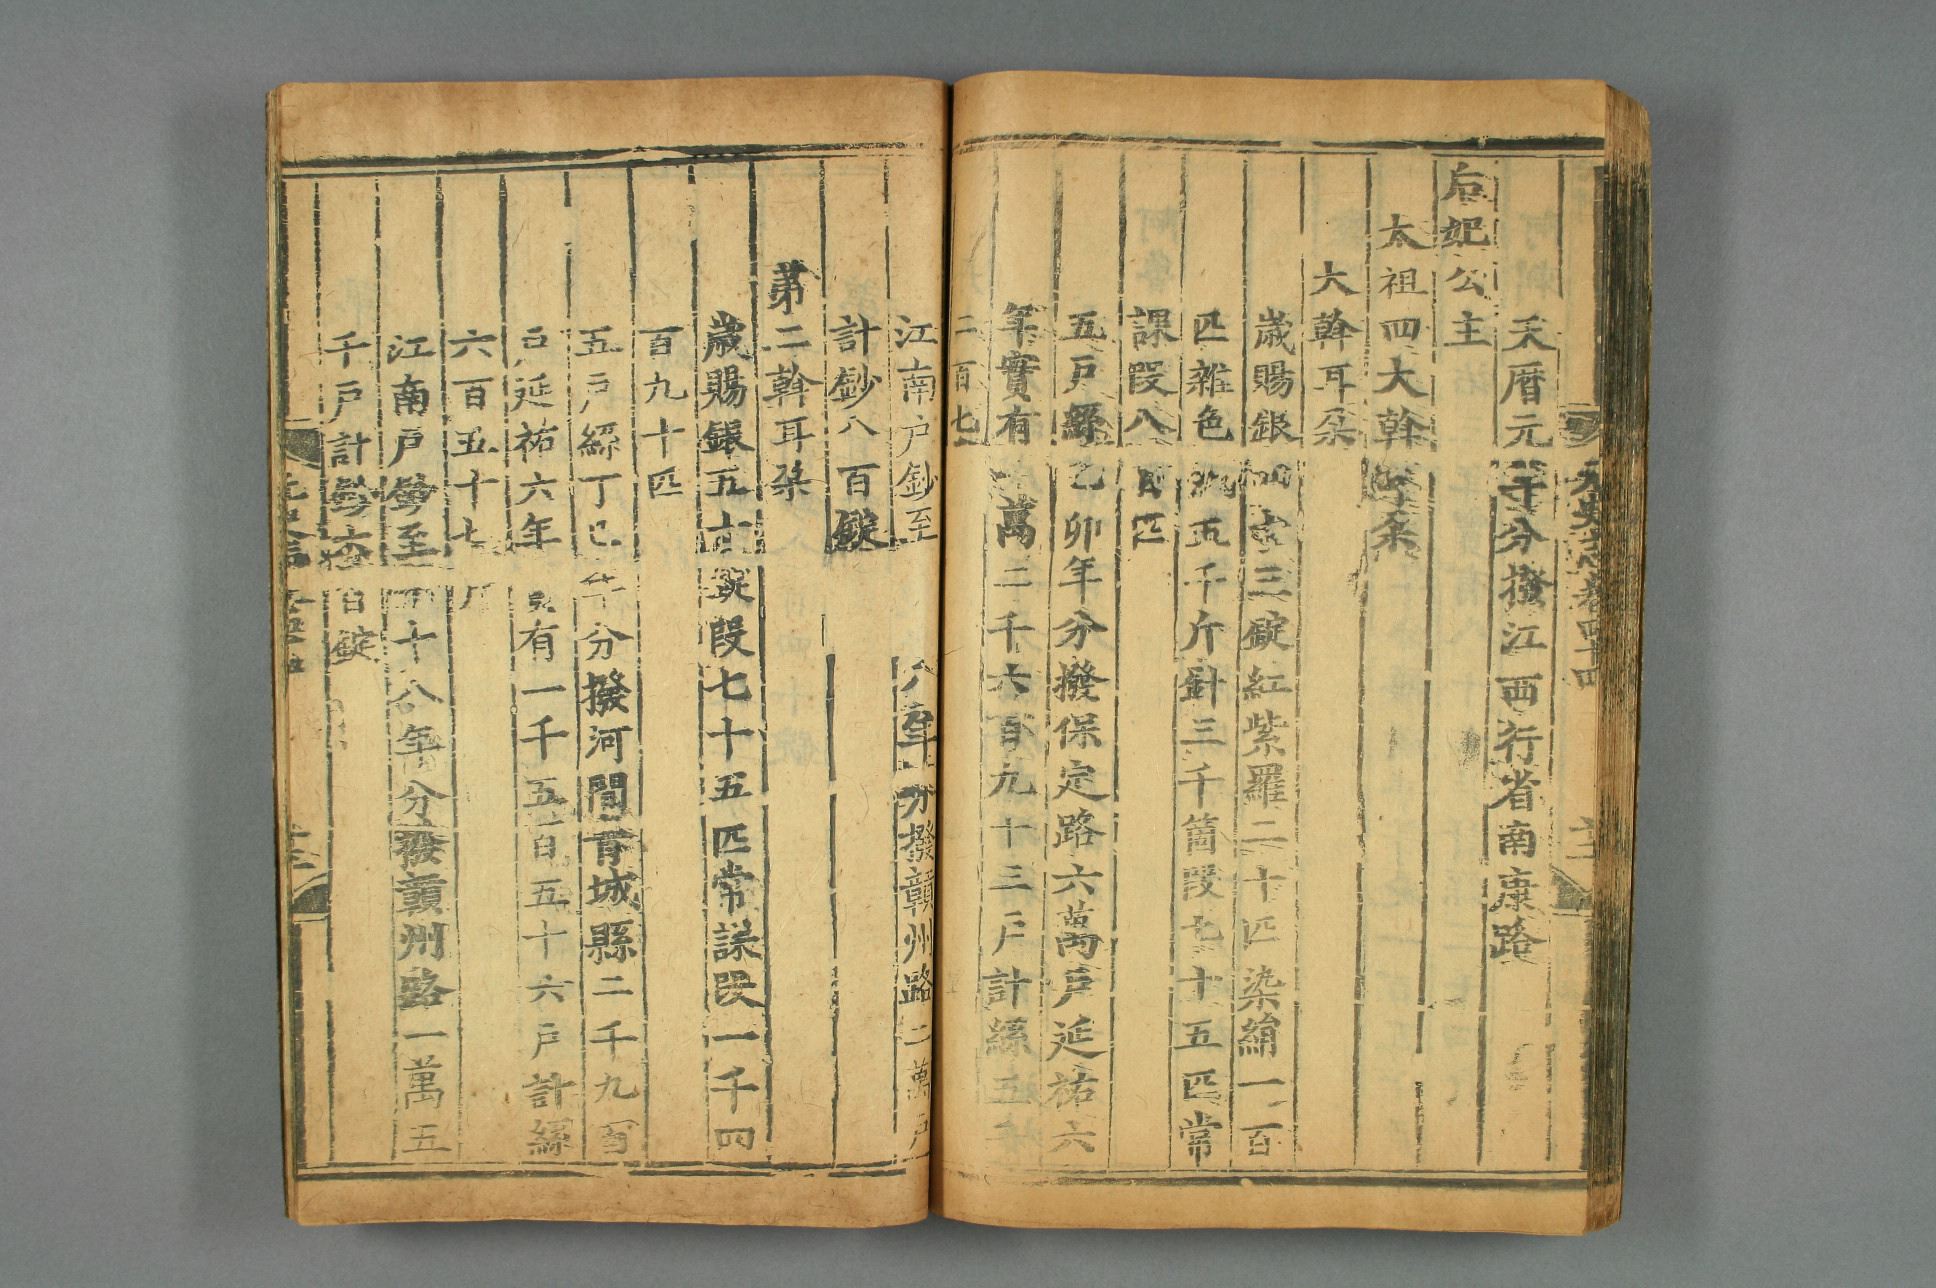 天曆元年分撥江西行省南康路
后妃公主
太祖四大斡耳朶
大斡耳朶
歲賜銀四十三錠紅紫羅二十匹染絹一百
匹雜色絨五千斤針三千箇段七十五匹常
課段八百匹
五戶絲乙卯年分撥保定路六萬戶延祐六
年實有一萬二千六百九十三戶計絲五千
二百七
江南戶鈔至
八年分撥贛州路二萬戶
計鈔八百錠
第二斡耳朶
歲賜銀五十錠段七十五匹常課段一千四
百九十匹
五戶絲丁巳年分撥河間青城縣二千九百
戶延祐六年實有一千五百五十六戶計絲
六百五十七斤
江南戶鈔至元十八年分撥贛州路一萬五
千戶計鈔六百錠